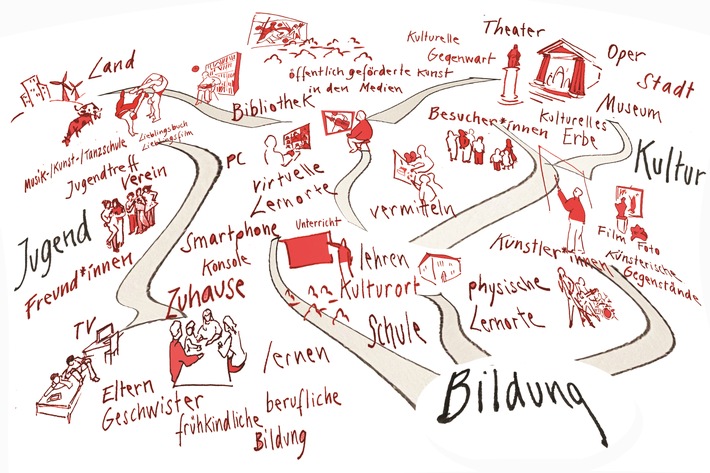 Theater
Kulturelle
Gegenwart
Oper
Land
öffentlich geförderte Kunst
in den Medien
Stadt
Bibliothek
Museum
Besucher*innen
Kulturelles
Erbe
Lieblingsbuch
Lieblingsfilm
Musik-/Kunst-/Tanzschule
Jugendtreff
Verein
PC
virtuelle
Lernorte
Kultur
vermitteln
Jugend
Freund*innen
Smartphone
Konsole
Zuhause
Unterricht
lehren
Kulturort
Schule
Film
Foto
Künstler*innen
Künsterische
Gegenstände
physische
Lernorte
TV
lernen
Eltern
Geschwister
frühkindliche
berufliche
Bildung
Bildung